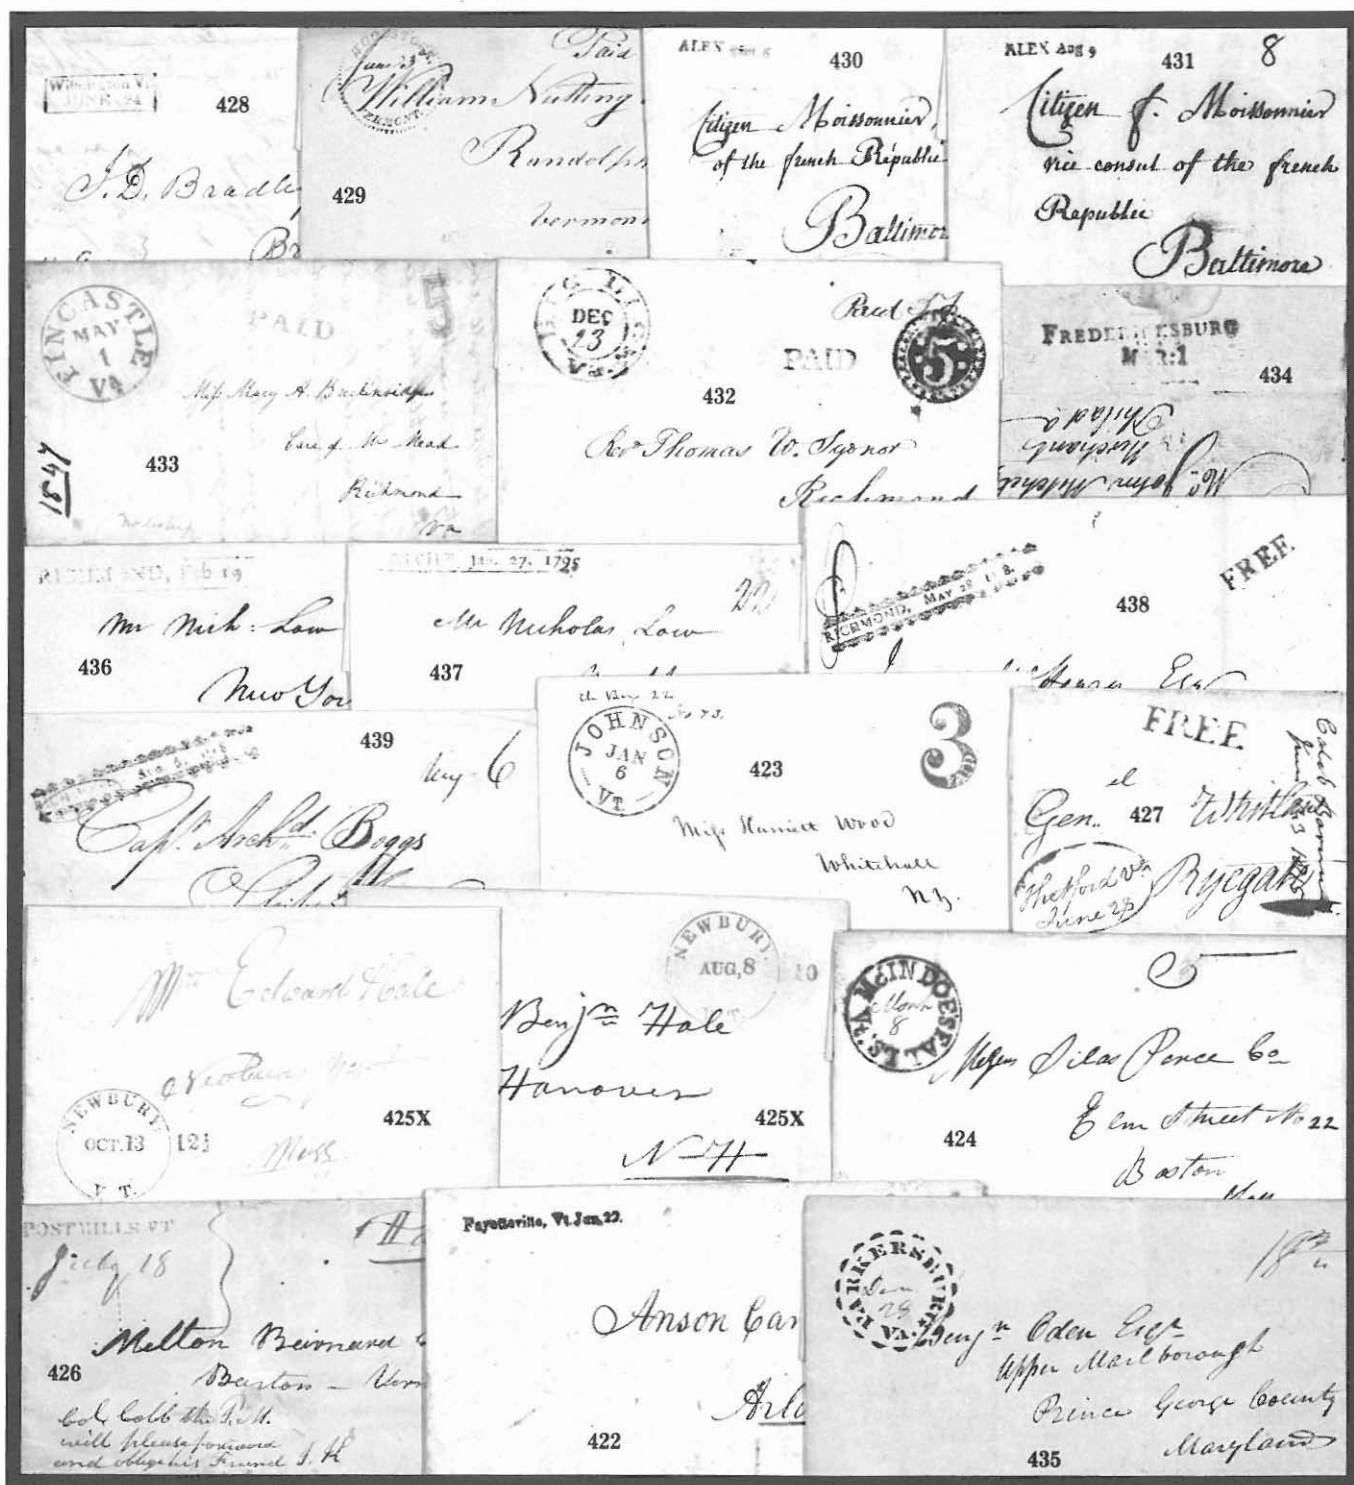 Wilmington Vt.
JUNE 24
428
J. D. Bradley
Br
WOODSTOCK
June 23
VERMONT.
Paid
William Nutting
Randolph
429
Vermont
ALEX
430
Citizen Moissonnier,
of the french Republic
Baltimor
ALEX Aug 9
431
8
Citizen f. Moissonnier
vice consul of the french
Republic
Baltimore
FINCASTLE
MAY
1
VA
PAID
5
Miss Mary A. Breckinridge
Care of Mr Mead
433
Richmond
Va
1847
BIG LICK
DEC
23
VA.
Paid
PAID
5
432
Rev Thomas W. Sydnor
Richmond
FREDERICKSBURG
MAR:1
434
Philada
Merchants
Mr. John Mitchel
RICHMOND, Feb 19
Mr Nich: Low
436
New Yor
RICHD. Jan. 27, 1795
Mr Nicholas Low
437
RICHMOND, MAY 28
FREE
438
Esq
439
6
Capt. Archd. Boggs
JOHNSON
JAN
6
VT.
423
3
Miss Harriett Wood
Whitehall
N.Y.
FREE
Genel
427
Thetford Vt
June 28
Ryegate
Mr Edward Hale
Newbury
NEWBURY.
OCT.13
V.T.
12½
425X
Mass
NEWBURY.
AUG,8
V.T.
10
Benjn Hale
Hanover
425X
N-H
McINDOESFALLS, Vt
8
5
Messrs Silas Pierce Co
Elm Street No 22
424
Boston
Mass
POSTMILLS VT
July 18
Melton
426
Barton - Verm
Col. Cobb the P.M.
will please forward
and oblige his Friend J. H
Fayetteville, Vt. Jan, 22.
Anson Car
Arlo
422
PARKERSBURG
VA
29
18¾
Benjn Oden Esqr
Upper Marlborough
Prince George County
435
Maryland